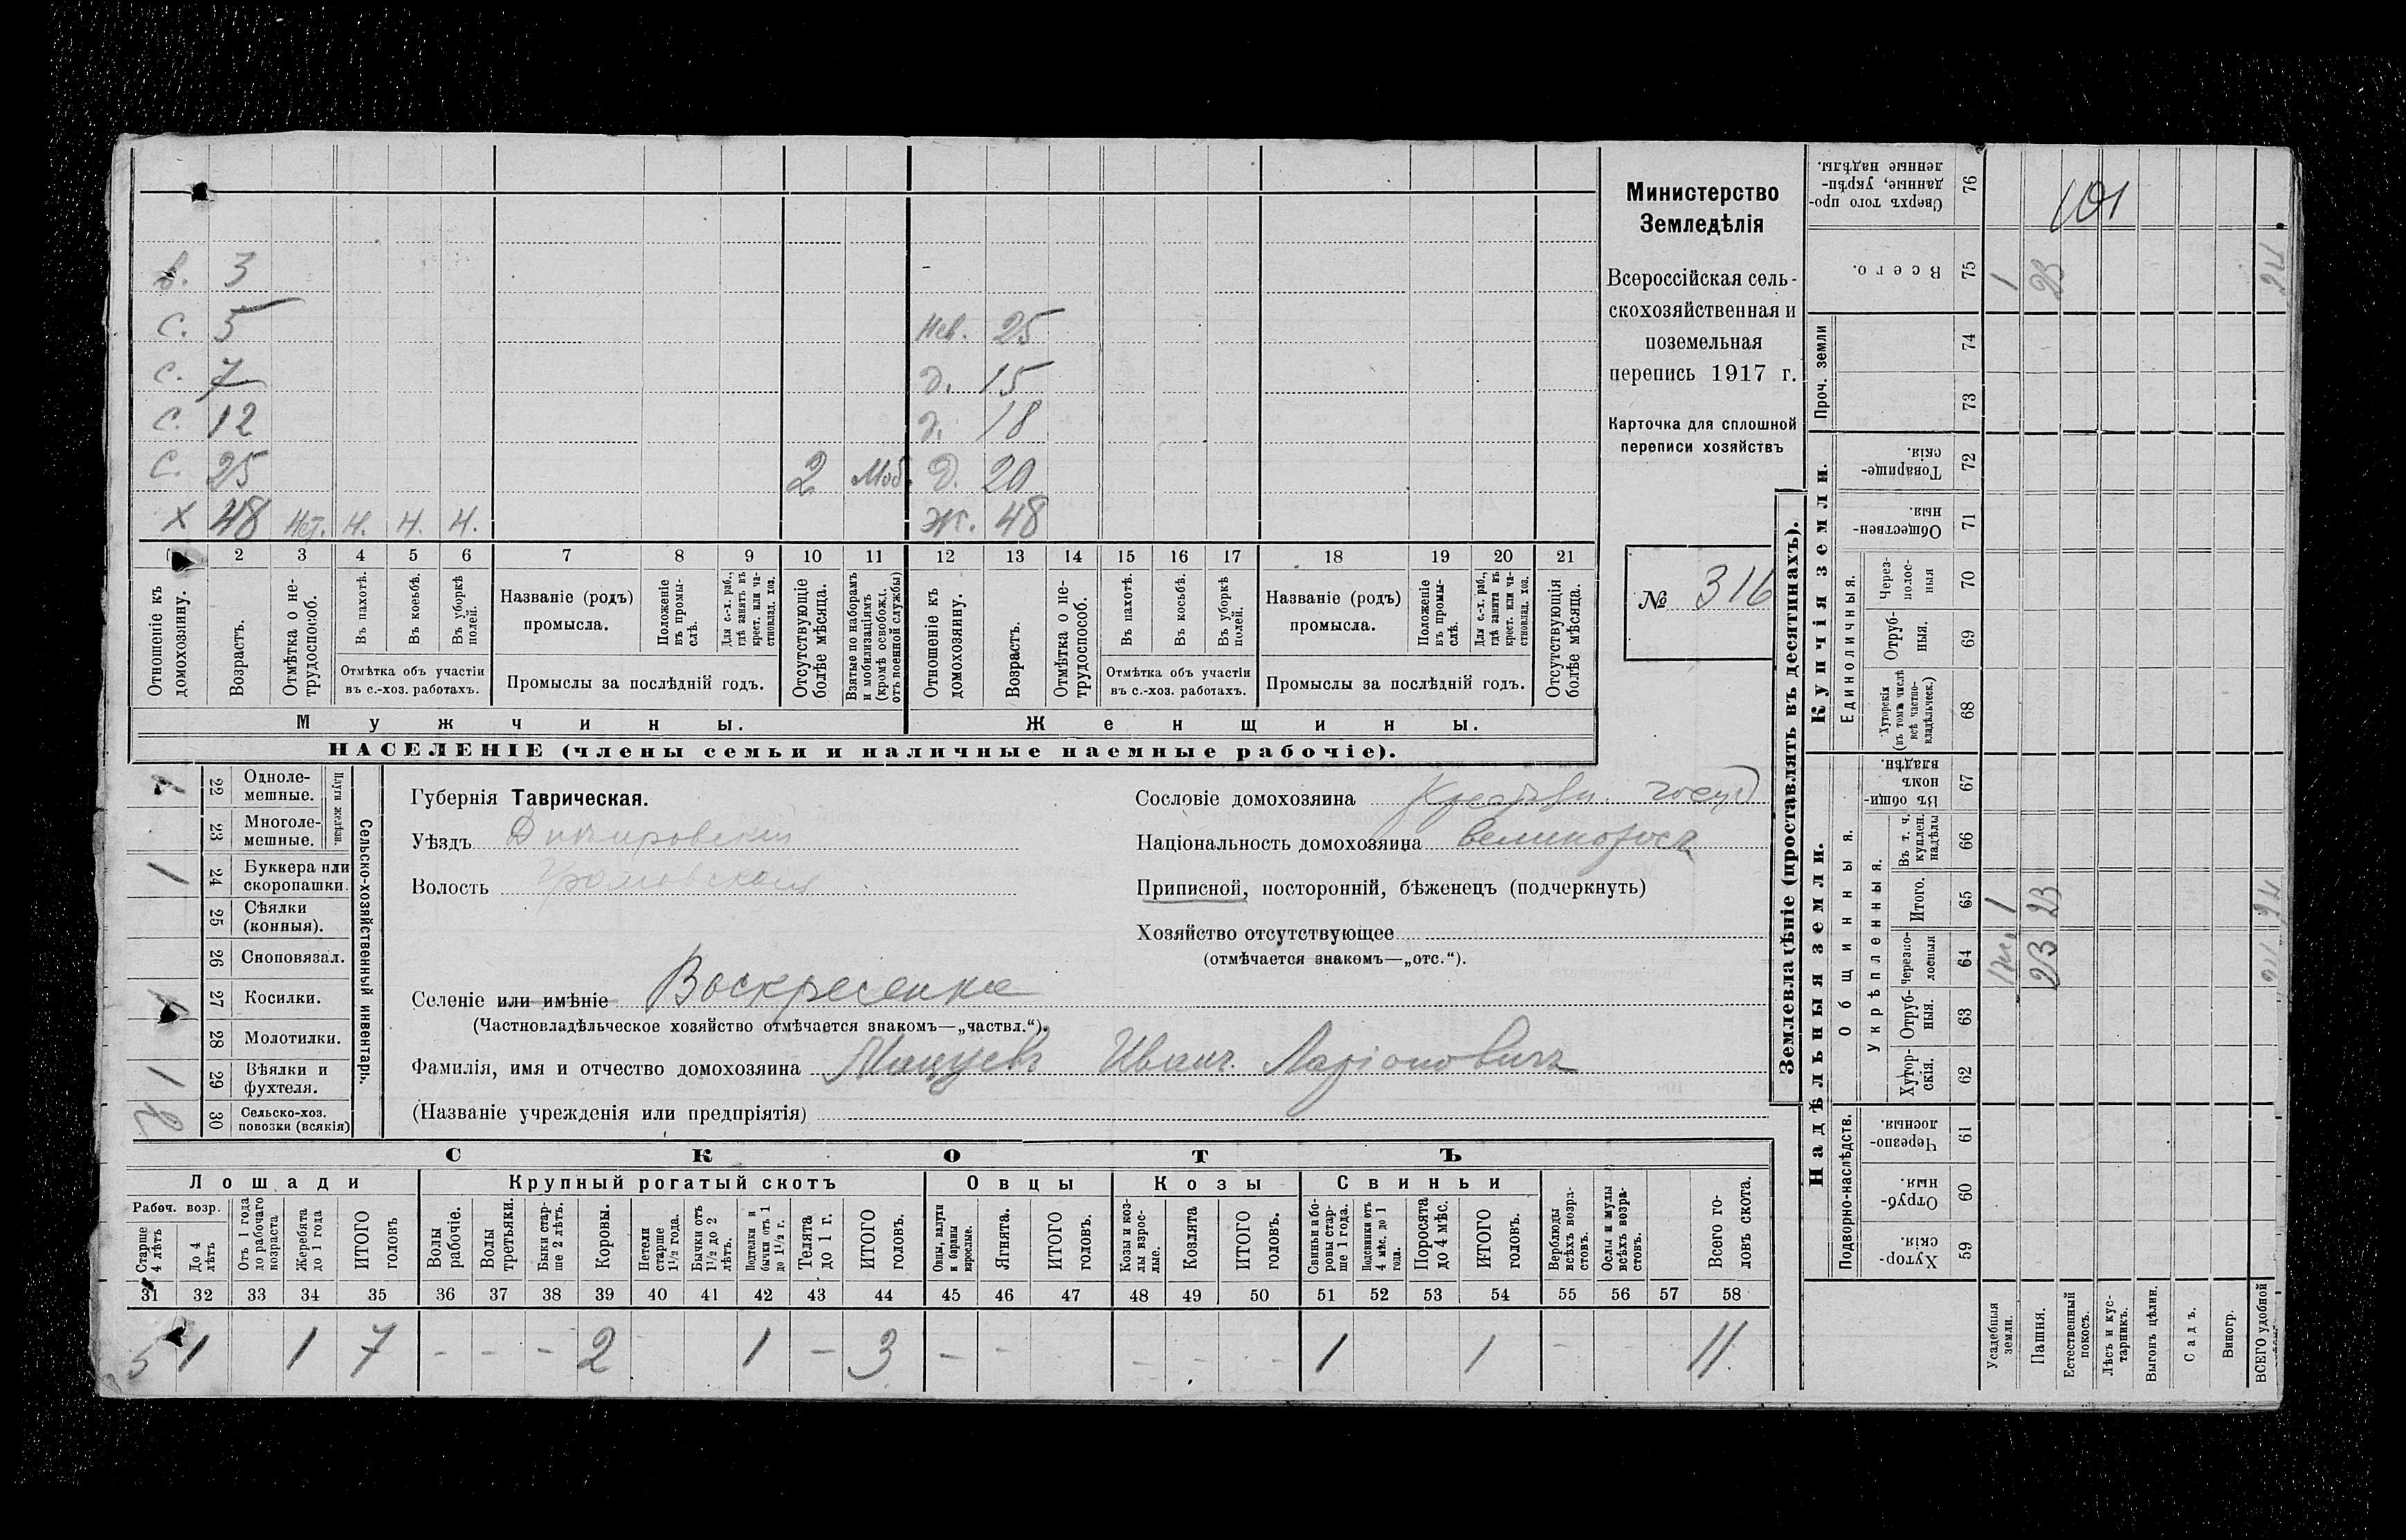 Министерство
Земледѣлія
Всероссійская сель-
скохозяйственная и
поземельная
перепись 1917 г.
Карточка для сплошной
переписи хозяйствъ
№ 316
3
С. 5
нев. 25
С. 7
д. 15
С. 12
д. 18
С. 25 2 Моб.
д. 20
Х 48 Нет. Н. Н. Н.
Ж. 48
1 2 3 4 5 6 7 8 9 10 11 12 13 14 15 16 17 18 19 20 21
Отношеніе къ домохозяину.
Возрастъ.
Отмѣтка о не-
трудоспособ.
Въ пахотѣ.
Въ косьбѣ.
Въ уборкѣ полей.
Отмѣтка объ участіи
въ с.-хоз. работахъ.
Названіе (родъ)
промысла.
Положеніе
въ промы-
слѣ.
Для с.-х. раб.,
гдѣ занятъ въ
крест. или ча-
стновлад. хоз.
Промыслы за послѣдній годъ.
Отсутствующіе
болѣе мѣсяца.
Взятые по наборамъ
и мобилизаціямъ
(кромѣ освобожд.
отъ военной службы)
Отношеніе къ
домохозяину.
Возрастъ.
Отмѣтка о не-
трудоспособ.
Въ пахотѣ.
Въ косьбѣ.
Въ уборкѣ
полей.
Отмѣтка объ участіи
въ с.-хоз. работахъ.
Названіе (родъ)
промысла.
Положеніе
въ промы-
слѣ.
Для с.-х. раб.,
гдѣ занята въ
крест. или ча-
стновлад. хоз.
Промыслы за послѣдній годъ.
Отсутствующія
болѣе мѣсяца.
Мужчины.
Женщины.
НАСЕЛЕНІЕ (члены семьи и наличные наемные рабочіе).
Сельско-хозяйственный инвентарь.
Плуги желѣзн.
1 22 Одноле-
мешные.
23 Многоле-
мешные.
1 24 Буккера или
скоропашки.
25 Сѣялки
(конныя).
26 Сноповязал.
1 27 Косилки.
28 Молотилки.
1 29 Вѣялки и
фухтеля.
2 30 Сельско-хоз.
повозки (всякія)
Губернія Таврическая.
Уѣздъ Днѣпровскій
Волость Громовская
Селеніе или имѣніе Воскресенка
(Частновладѣльческое хозяйство отмѣчается знакомъ—„частвл.“).
Фамилія, имя и отчество домохозяина Мацуевъ Иванъ Ларіоновичъ
(Названіе учрежденія или предпріятія)
Сословіе домохозяина Крестьян. госуд
Національность домохозяина великоросъ
Приписной, посторонній, бѣженецъ (подчеркнуть)
Хозяйство отсутствующее
(отмѣчается знакомъ—„отс.“).
СКОТЪ
Лошади
Крупный рогатый скотъ
Овцы
Козы
Свиньи
Рабоч. возр.
Старше
4 лѣтъ
До 4
лѣтъ
Отъ 1 года
до рабочаго
возраста
Жеребята
до 1 года
ИТОГО
головъ
Волы
рабочіе.
Волы
третьяки.
Быки стар-
ше 2 лѣтъ.
Коровы.
Нетели
старше
1½ года.
Бычки отъ
1½ до 2
лѣтъ.
Подтелки и
бычки отъ 1
до 1½ г.
Телята
до 1 г.
ИТОГО
головъ.
Овцы, валухи
и бараны
взрослые.
Ягнята.
ИТОГО
головъ.
Козы и коз-
лы взрос-
лые.
Козлята
ИТОГО
головъ.
Свиньи и бо-
ровы стар-
ше 1 года.
Подсвинки отъ
4 мѣс. до 1
года.
Поросята
до 4 мѣс.
ИТОГО
головъ.
Верблюды
всѣхъ возра-
стовъ.
Ослы и мулы
всѣхъ возра-
стовъ.
Всего го-
ловъ скота.
31 32 33 34 35 36 37 38 39 40 41 42 43 44 45 46 47 48 49 50 51 52 53 54 55 56 57 58
5 1 1 7 - - - 2 1 - 3 - - - - - 1 1 - - 11
Землевладѣніе (проставлять въ десятинахъ).
Надѣльныя земли.
Купчія земли.
Проч. земли
Подворно-наслѣдств.
Общинныя.
Укрѣпленныя.
Единоличныя.
Сверхъ того про-
данные, укрѣп-
ленные надѣлы.
76
101
Всего.
75 1 23 24
74
73
Товарище-
скія.
72
Обществен-
ныя.
71
Через-
полос-
ныя
70
Отруб-
ныя.
69
Хуторскія
(въ томъ числѣ
всѣ частно-
владѣльческ.)
68
Въ общи-
номъ
владѣн.
67
Въ т. ч.
куплен.
надѣлы
66
Итого.
65 1 23 24
Черезпо-
лосныя
64 1 23 24
Отруб-
ныя.
63
Хутор-
скія.
62
Черезпо-
лосныя.
61
Отруб-
ныя.
60
Хутор-
скія.
59
Усадебныя
земли.
Пашня.
Естественный
покосъ.
Лѣсъ и кус-
тарникъ.
Выгонъ цѣлин.
Садъ.
Виногр.
ВСЕГО удобной